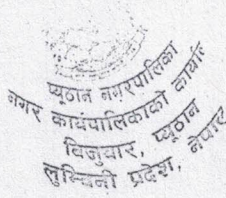 प्यूठान नगरपालिका
नगर कार्यपालिकाको कार्याल
विजुवार, प्यूठान
लुम्बिनी प्रदेश, नेपाल